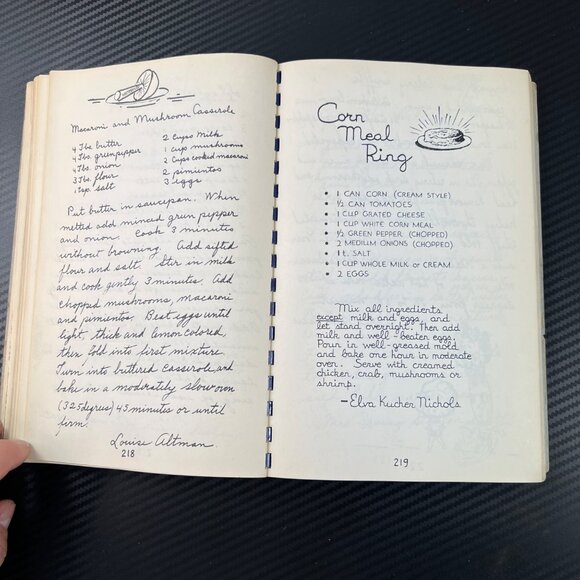 Macaroni and Mushroom Casserole
4 Tbs. butter
4 Tbs. green pepper
4 Tbs. onion
3 Tbs. flour
1 tsp. salt
2 cups milk
1 cup mushrooms
2 cups cooked macaroni
2 pimientos
3 eggs
Put butter in saucepan. When
melted add minced green pepper
and onion. Cook 3 minutes
without browning. Add sifted
flour and salt. Stir in milk
and cook gently 3 minutes. Add
chopped mushrooms, macaroni
and pimientos. Beat eggs until
light, thick and lemon colored,
then fold into first mixture.
Turn into buttered casserole and
bake in a moderately slow oven
(325 degrees) 45 minutes or until
firm.
Louise Altman.
218
Corn
Meal
Ring
• 1 CAN CORN (CREAM STYLE)
• ½ CAN TOMATOES
• 1 CUP GRATED CHEESE
• 1 CUP WHITE CORN MEAL
• ½ GREEN PEPPER (CHOPPED)
• 2 MEDIUM ONIONS (CHOPPED)
• 1 t. SALT
• 1 CUP WHOLE MILK or CREAM
• 2 EGGS
Mix all ingredients
except milk and eggs, and
let stand overnight. Then add
milk and well-beaten eggs.
Pour in well-greased mold
and bake one hour in moderate
oven. Serve with creamed
chicken, crab, mushrooms or
shrimp.
—Elva Kucher Nichols
219